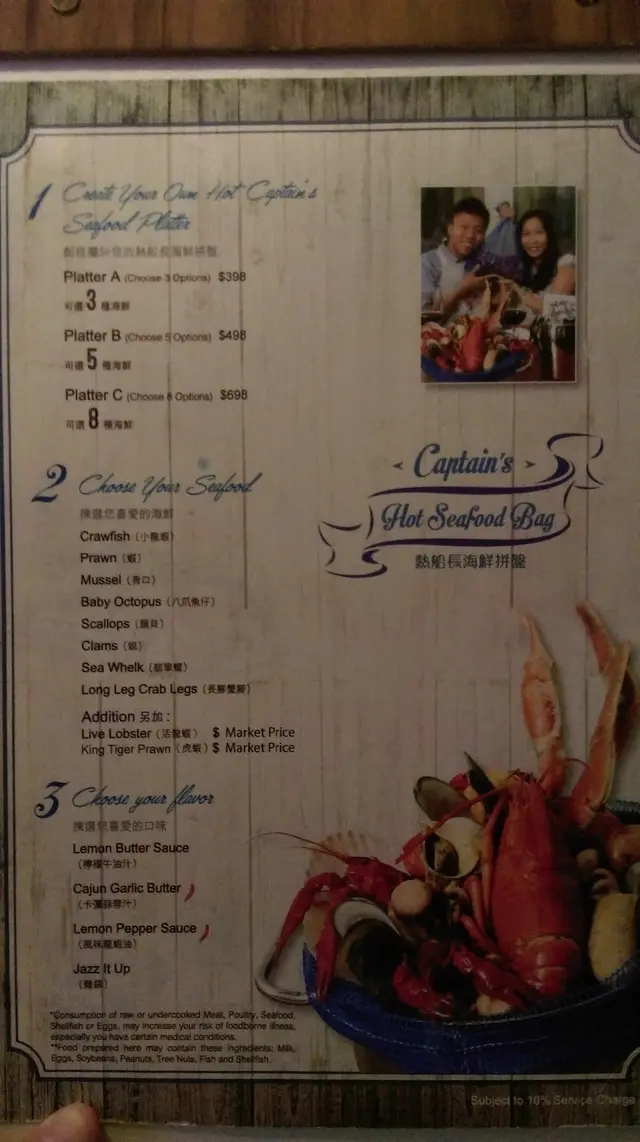 1 Create Your Own Hot Captain's
Seafood Platter
Platter A (Choose 3 Options) $398
可選 3 種海鮮
Platter B (Choose 5 Options) $498
可選 5 種海鮮
Platter C (Choose 8 Options) $698
可選 8 種海鮮
< Captain's >
Hot Seafood Bag
熱船長海鮮拼盤
2 Choose Your Seafood
揀選您喜愛的海鮮
Crawfish (小龍蝦)
Prawn (蝦)
Mussel (青口)
Baby Octopus (八爪魚仔)
Scallops (扇貝)
Clams (蜆)
Sea Whelk (翡翠螺)
Long Leg Crab Legs (長腳蟹腳)
Addition 另加：
Live Lobster (活龍蝦) $ Market Price
King Tiger Prawn (虎蝦) $ Market Price
3 Choose your flavor
揀選您喜愛的口味
Lemon Butter Sauce
(檸檬牛油汁)
Cajun Garlic Butter
Lemon Pepper Sauce
(風味龍蝦油)
Jazz It Up
*Consumption of raw or undercooked Meat, Poultry, Seafood,
Shellfish or Eggs, may increase your risk of foodborne illness,
especially you have certain medical conditions.
**Food prepared here may contain these ingredients: Milk,
Eggs, Soybeans, Peanuts, Tree Nuts, Fish and Shellfish.
Subject to 10% Service Charge